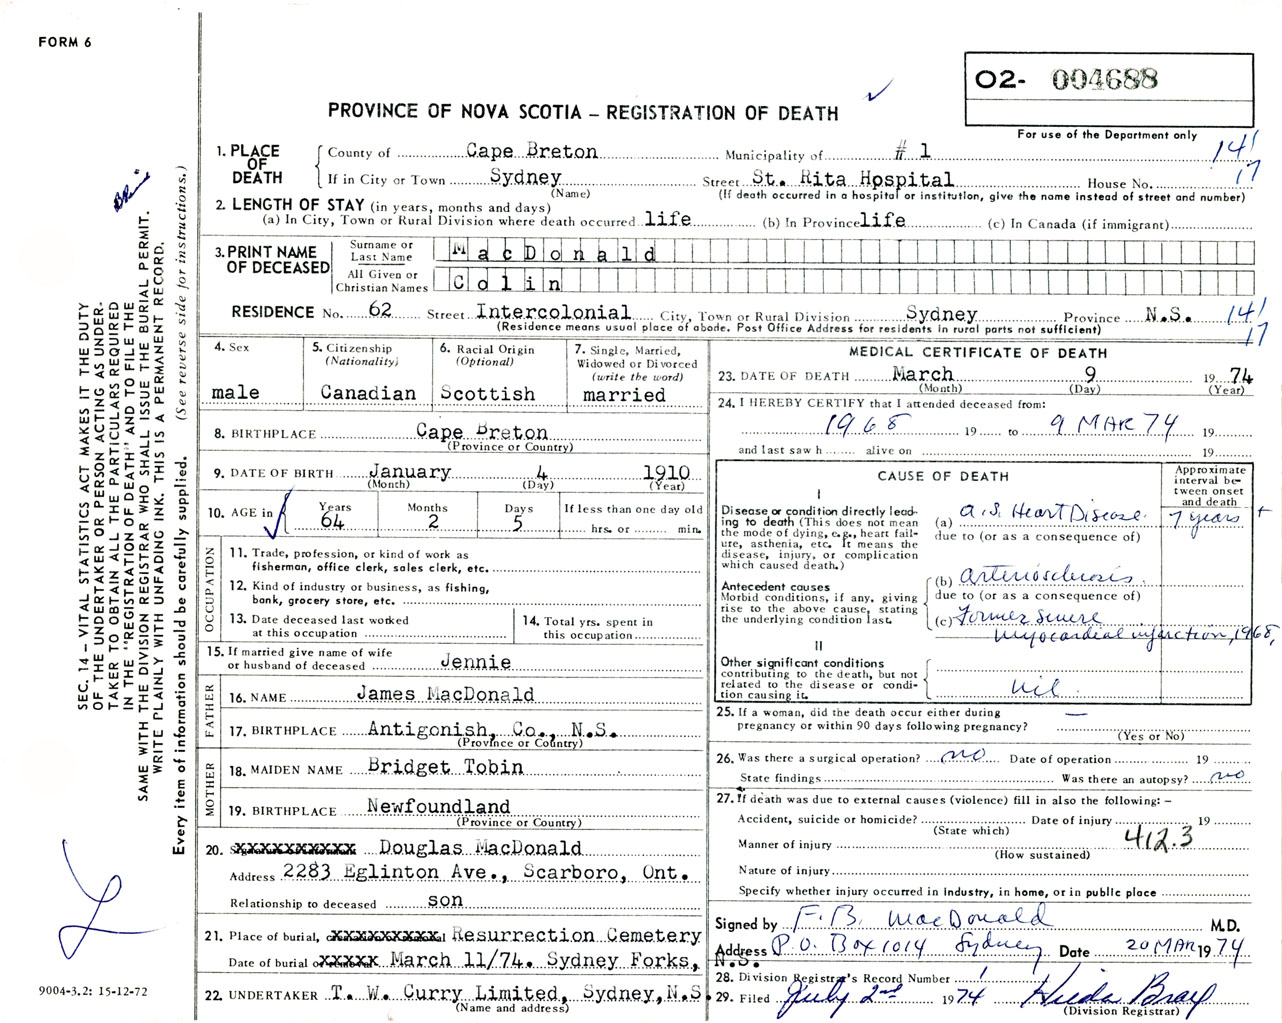 FORM 6
O2- 004688
PROVINCE OF NOVA SCOTIA – REGISTRATION OF DEATH
For use of the Department only
1. PLACE OF DEATH
County of Cape Breton Municipality of # 1 141
If in City or Town Sydney Street St. Rita Hospital House No. 17
(Name) (If death occurred in a hospital or institution, give the name instead of street and number)
2. LENGTH OF STAY (in years, months and days)
(a) In City, Town or Rural Division where death occurred life (b) In Province life (c) In Canada (if immigrant)
3. PRINT NAME OF DECEASED
Surname or Last Name MacDonald
All Given or Christian Names Colin
RESIDENCE No. 62 Street Intercolonial City, Town or Rural Division Sydney Province N.S. 141
(Residence means usual place of abode. Post Office Address for residents in rural parts not sufficient) 17
4. Sex
male
5. Citizenship
(Nationality)
Canadian
6. Racial Origin
(Optional)
Scottish
7. Single, Married,
Widowed or Divorced
(write the word)
married
8. BIRTHPLACE Cape Breton
(Province or Country)
9. DATE OF BIRTH January 4 1910
(Month) (Day) (Year)
10. AGE in
Years Months Days If less than one day old
64 2 5 hrs. or min.
OCCUPATION
11. Trade, profession, or kind of work as
fisherman, office clerk, sales clerk, etc.
12. Kind of industry or business, as fishing,
bank, grocery store, etc.
13. Date deceased last worked
at this occupation
14. Total yrs. spent in
this occupation
15. If married give name of wife
or husband of deceased Jennie
FATHER
16. NAME James MacDonald
17. BIRTHPLACE Antigonish, Co., N.S.
(Province or Country)
MOTHER
18. MAIDEN NAME Bridget Tobin
19. BIRTHPLACE Newfoundland
(Province or Country)
20. xxxxxxxxxxx Douglas MacDonald
Address 2283 Eglinton Ave., Scarboro, Ont.
Relationship to deceased son
21. Place of burial, xxxxxxxxxx Resurrection Cemetery
Date of burial or xxxxx March 11/74. Sydney Forks, N.S.
22. UNDERTAKER T. W. Curry Limited, Sydney, N.S.
(Name and address)
MEDICAL CERTIFICATE OF DEATH
23. DATE OF DEATH March 9 19 74
(Month) (Day) (Year)
24. I HEREBY CERTIFY that I attended deceased from:
1968 19 to 9 MAR 74 19
and last saw h alive on 19
CAUSE OF DEATH
Approximate
interval be-
tween onset
and death
I
Disease or condition directly lead-
ing to death (This does not mean
the mode of dying, e.g., heart fail-
ure, asthenia, etc. It means the
disease, injury, or complication
which caused death.)
(a) A.S. Heart Disease. 7 years +
due to (or as a consequence of)
Antecedent causes
Morbid conditions, if any, giving
rise to the above cause, stating
the underlying condition last.
(b) arteriosclerosis.
due to (or as a consequence of)
(c) Former severe
myocardial infarction, 1968,
II
Other significant conditions
contributing to the death, but not
related to the disease or condi-
tion causing it.
nil.
25. If a woman, did the death occur either during
pregnancy or within 90 days following pregnancy? —
(Yes or No)
26. Was there a surgical operation? no Date of operation 19
State findings Was there an autopsy? no
27. If death was due to external causes (violence) fill in also the following: –
Accident, suicide or homicide? Date of injury 19
(State which)
412.3
Manner of injury
(How sustained)
Nature of injury
Specify whether injury occurred in industry, in home, or in public place
Signed by F. B. MacDonald M.D.
Address P.O. Box 1014 Sydney Date 20 MAR 1974
28. Division Registrar's Record Number 1
29. Filed July 2nd 1974 Hilda Bray
(Division Registrar)
SEC. 14 – VITAL STATISTICS ACT MAKES IT THE DUTY
OF THE UNDERTAKER OR PERSON ACTING AS UNDER-
TAKER TO OBTAIN ALL THE PARTICULARS REQUIRED
IN THE "REGISTRATION OF DEATH" AND TO FILE THE
SAME WITH THE DIVISION REGISTRAR WHO SHALL ISSUE THE BURIAL PERMIT.
WRITE PLAINLY WITH UNFADING INK. THIS IS A PERMANENT RECORD.
Every item of information should be carefully supplied. (See reverse side for instructions.)
9004-3.2: 15-12-72